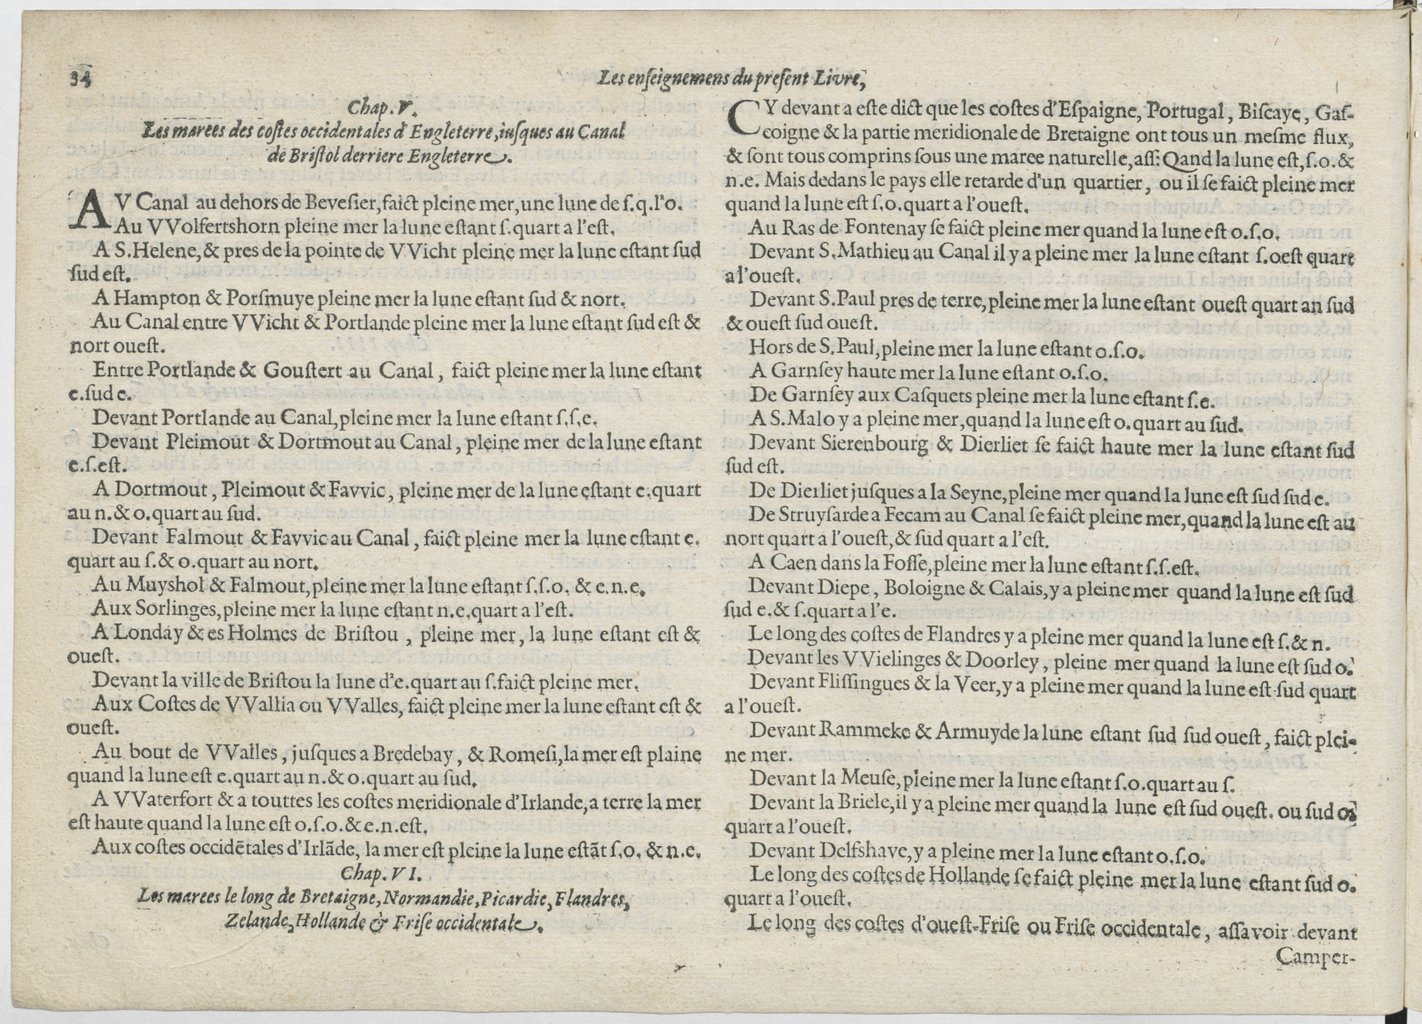 34
Les enseignemens du present Livre,
Chap. V.
Les marees des costes occidentales d'Engleterre, iusques au Canal
de Bristol derriere Engleterre.
AV Canal au dehors de Bevesier, faict pleine mer, une lune de s.q.l'o.
Au VVolfertshorn pleine mer la lune estant s.quart a l'est.
A S.Helene, & pres de la pointe de VVicht pleine mer la lune estant sud
sud est.
A Hampton & Porsmuye pleine mer la lune estant sud & nort.
Au Canal entre VVicht & Portlande pleine mer la lune estant sud est &
nort ouest.
Entre Portlande & Goustert au Canal, faict pleine mer la lune estant
e.sud e.
Devant Portlande au Canal, pleine mer la lune estant s.s.e.
Devant Pleimout & Dortmout au Canal, pleine mer de la lune estant
e.s.est.
A Dortmout, Pleimout & Favvic, pleine mer de la lune estant e.quart
au n.& o.quart au sud.
Devant Falmout & Favvic au Canal, faict pleine mer la lune estant e.
quart au s.& o.quart au nort.
Au Muyshol & Falmout, pleine mer la lune estant s.s.o. & e.n.e.
Aux Sorlinges, pleine mer la lune estant n.e.quart a l'est.
A Londay & es Holmes de Bristou, pleine mer, la lune estant est &
ouest.
Devant la ville de Bristou la lune d'e.quart au s.faict pleine mer.
Aux Costes de VVallia ou VValles, faict pleine mer la lune estant est &
ouest.
Au bout de VValles, jusques a Bredebay, & Romesi, la mer est plaine
quand la lune est e.quart au n.& o.quart au sud.
A VVaterfort & a touttes les costes meridionale d'Irlande, a terre la mer
est haute quand la lune est o.s.o.& e.n.est.
Aux costes occidẽtales d'Irlãde, la mer est pleine la lune estãt s.o. & n.e.
Chap. VI.
Les marees le long de Bretaigne, Normandie, Picardie, Flandres,
Zelande, Hollande & Frise occidentale.
CY devant a este dict que les costes d'Espaigne, Portugal, Biscaye, Gas-
coigne & la partie meridionale de Bretaigne ont tous un mesme flux,
& sont tous comprins sous une maree naturelle, ass: Qand la lune est, s.o.&
n.e. Mais dedans le pays elle retarde d'un quartier, ou il se faict pleine mer
quand la lune est s.o.quart a l'ouest.
Au Ras de Fontenay se faict pleine mer quand la lune est o.s.o.
Devant S.Mathieu au Canal il y a pleine mer la lune estant s.oest quart
a l'ouest.
Devant S.Paul pres de terre, pleine mer la lune estant ouest quart an sud
& ouest sud ouest.
Hors de S.Paul, pleine mer la lune estant o.s.o.
A Garnsey haute mer la lune estant o.s.o.
De Garnsey aux Casquets pleine mer la lune estant s.e.
A S.Malo y a pleine mer, quand la lune est o.quart au sud.
Devant Sierenbourg & Dierliet se faict haute mer la lune estant sud
sud est.
De Dierliet jusques a la Seyne, pleine mer quand la lune est sud sud e.
De Struysarde a Fecam au Canal se faict pleine mer, quand la lune est au
nort quart a l'ouest, & sud quart a l'est.
A Caen dans la Fosse, pleine mer la lune estant s.s.est.
Devant Diepe, Boloigne & Calais, y a pleine mer quand la lune est sud
sud e.& s.quart a l'e.
Le long des costes de Flandres y a pleine mer quand la lune est s.& n.
Devant les VVielinges & Doorley, pleine mer quand la lune est sud o.
Devant Flissingues & la Veer, y a pleine mer quand la lune est sud quart
a l'ouest.
Devant Rammeke & Armuyde la lune estant sud sud ouest, faict plei-
ne mer.
Devant la Meuse, pleine mer la lune estant s.o.quart au s.
Devant la Briele, il y a pleine mer quand la lune est sud ouest. ou sud o.
quart a l'ouest.
Devant Delfshave, y a pleine mer la lune estant o.s.o.
Le long des costes de Hollande se faict pleine mer la lune estant sud o.
quart a l'ouest.
Le long des costes d'ouest-Frise ou Frise occidentale, assavoir devant
Camper-